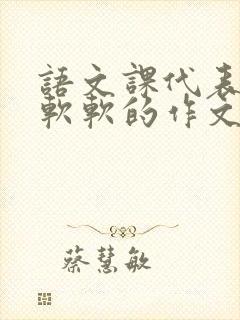 語文課代表
軟軟的作文
蔡慧敏